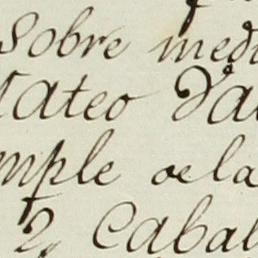 Sobre med
Mateo Da
mple de la
2, Cabal